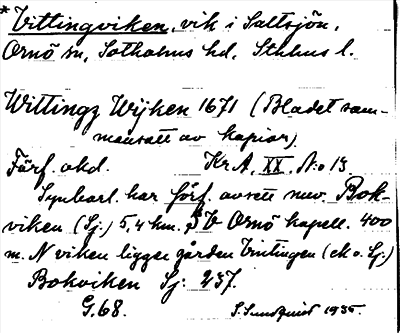 *Vittingviken, vik i Saltsjön,
Ornö sn, Sotholms hd, Sthlms l.
Wittingz Wijken 1671 (Bladet sam-
mansatt av kopior)
Förf. okd. Kr.A. XX. No 13
Synbarl. har förf. avsett nuv. Bok-
viken (Sj.) 5,4 km. SV Ornö kapell. 400
m. N viken ligger gården Vintingen (ek o. Sj.)
Bokviken Sj: 237.
G.68. S. Sundquist 1935.